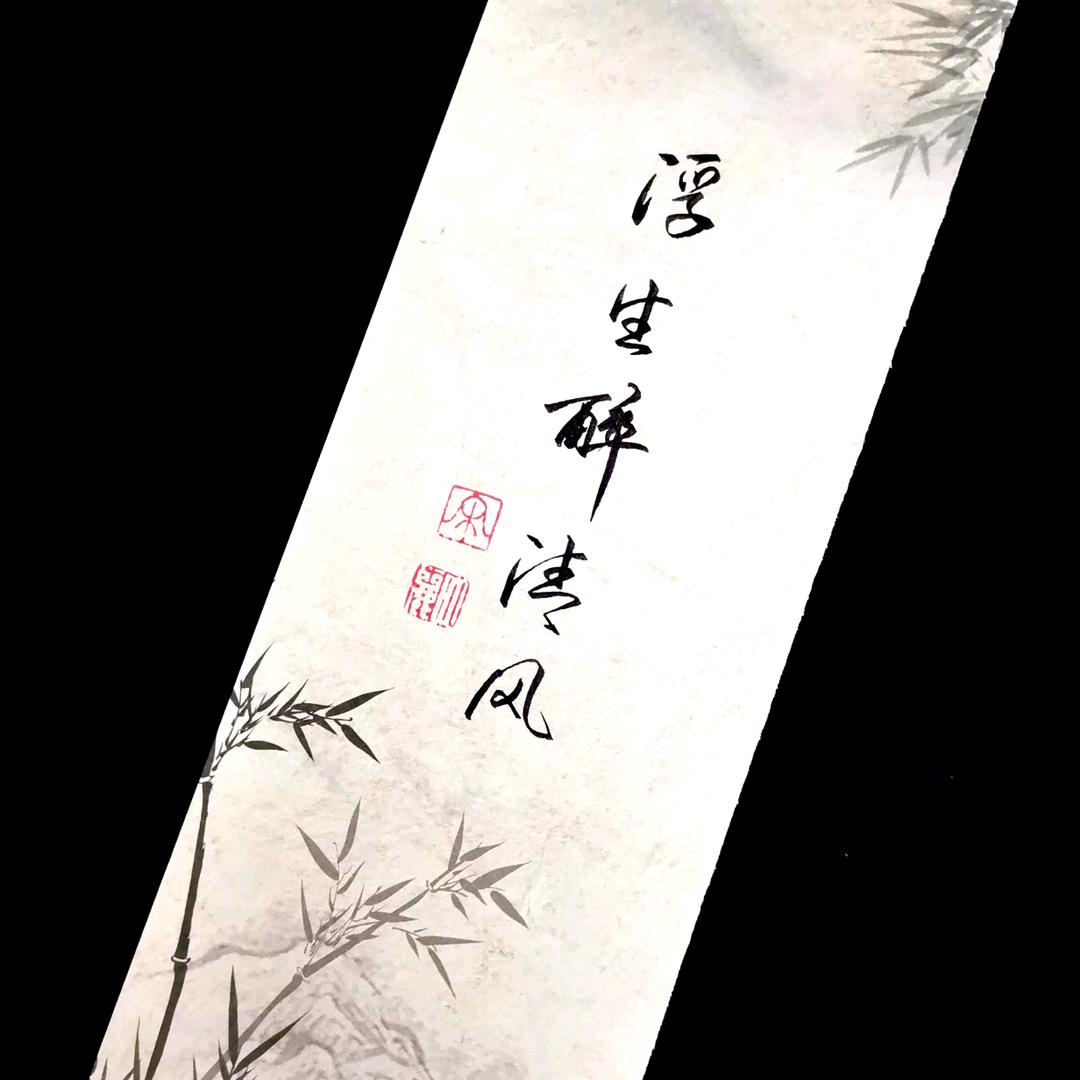 浮生醉清风
宋